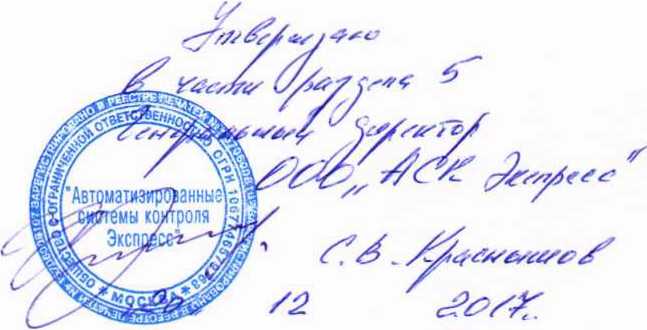 Утверждаю
в части раздела 5
Генеральный директор
ООО „АСК Экспресс"
"Автоматизированные
системы контроля
Экспресс"
ОБЩЕСТВО С ОГРАНИЧЕННОЙ ОТВЕТСТВЕННОСТЬЮ
МОСКВА
С.В. Краснышов
12 2017г.